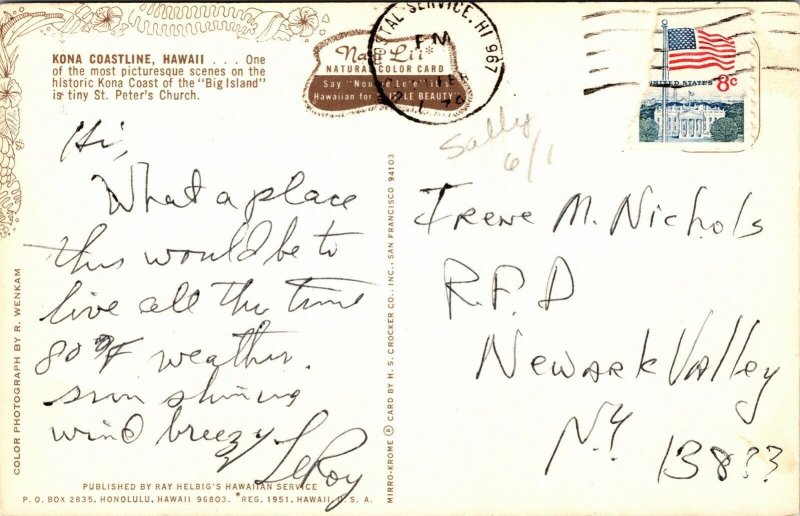 KONA COASTLINE, HAWAII . . . One
of the most picturesque scenes on the
historic Kona Coast of the "Big Island"
is tiny St. Peter's Church.
Nani Li'i*
NATURAL COLOR CARD
Hawaiian for LITTLE BEAUTY
POSTAL SERVICE, HI 967
PM
UNITED STATES 8c
Sally
6/1
Hi,
What a place
this would be to
live all the time
80°F weather.
sun shining
wind breezy
LeRoy
Irene M. Nichols
R.F.D
Newark Valley
N.Y.
138??
COLOR PHOTOGRAPH BY R. WENKAM
MIRRO-KROME ® CARD BY H. S. CROCKER CO., INC., SAN FRANCISCO, CA 94103
PUBLISHED BY RAY HELBIG'S HAWAIIAN SERVICE
P. O. BOX 2835, HONOLULU, HAWAII 96803. *REG. 1951, HAWAII, U. S. A.